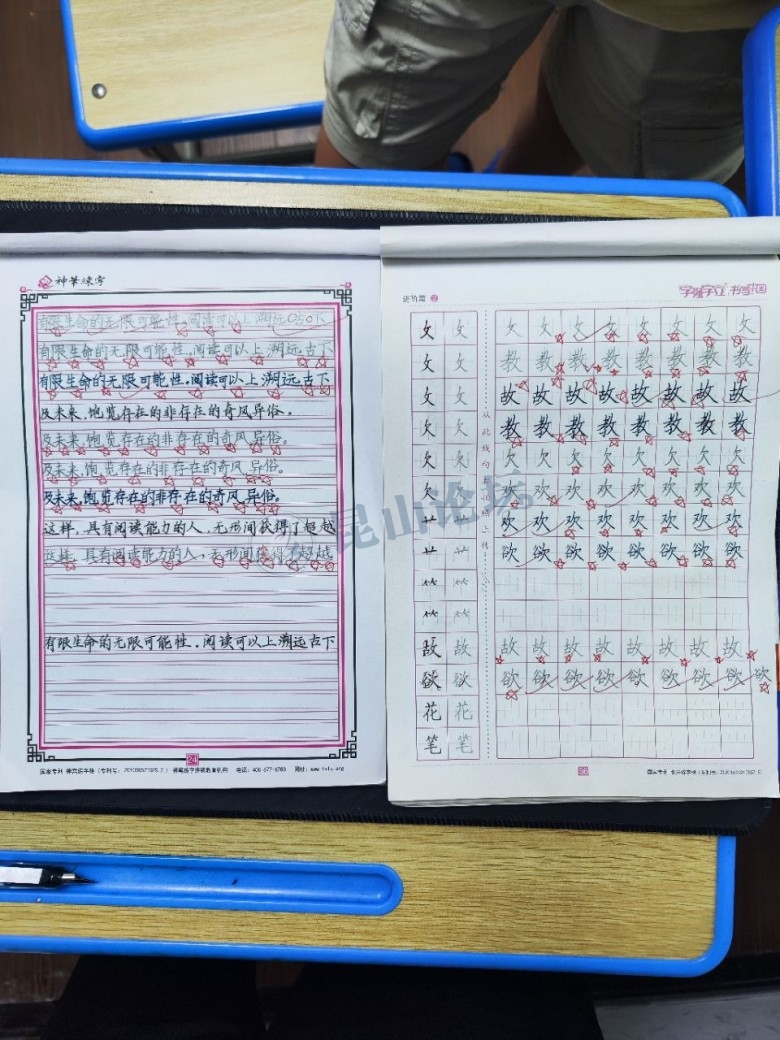 神笔练字
有限生命的无限可能性,阅读可以上溯远古下
有限生命的无限可能性,阅读可以上溯远古下
有限生命的无限可能性,阅读可以上溯远古下
及未来,饱览存在的非存在的奇风异俗。
及未来,饱览存在的非存在的奇风异俗。
及未来,饱览存在的非存在的奇风异俗。
及未来,饱览存在的非存在的奇风异俗。
这样,具有阅读能力的人,无形间获得了超越
这样,具有阅读能力的人,无形间获得了超越
有限生命的无限可能性,阅读可以上溯远古下
进阶篇
攵 攵 攵 攵 攵 攵 攵 攵 攵 攵
攵 攵 教 教 教 教 教 教 教 教
攵 攵 故 故 故 故 故 故 故 故
欠 欠 教 教 教 教 教 教 教 教
欠 欠 欠 欠 欠 欠 欠 欠 欠 欠
欠 欠 欢 欢 欢 欢 欢 欢 欢 欢
艹 艹 欢 欢 欢 欢 欢 欢 欢 欢
艹 艹 欲 欲 欲 欲 欲 欲 欲 欲
故 故 故 故 故 故 故 故 故 故
欲 欲 欲 欲 欲 欲 欲 欲 欲 欲 欲
花 花
笔 笔
昆山论坛